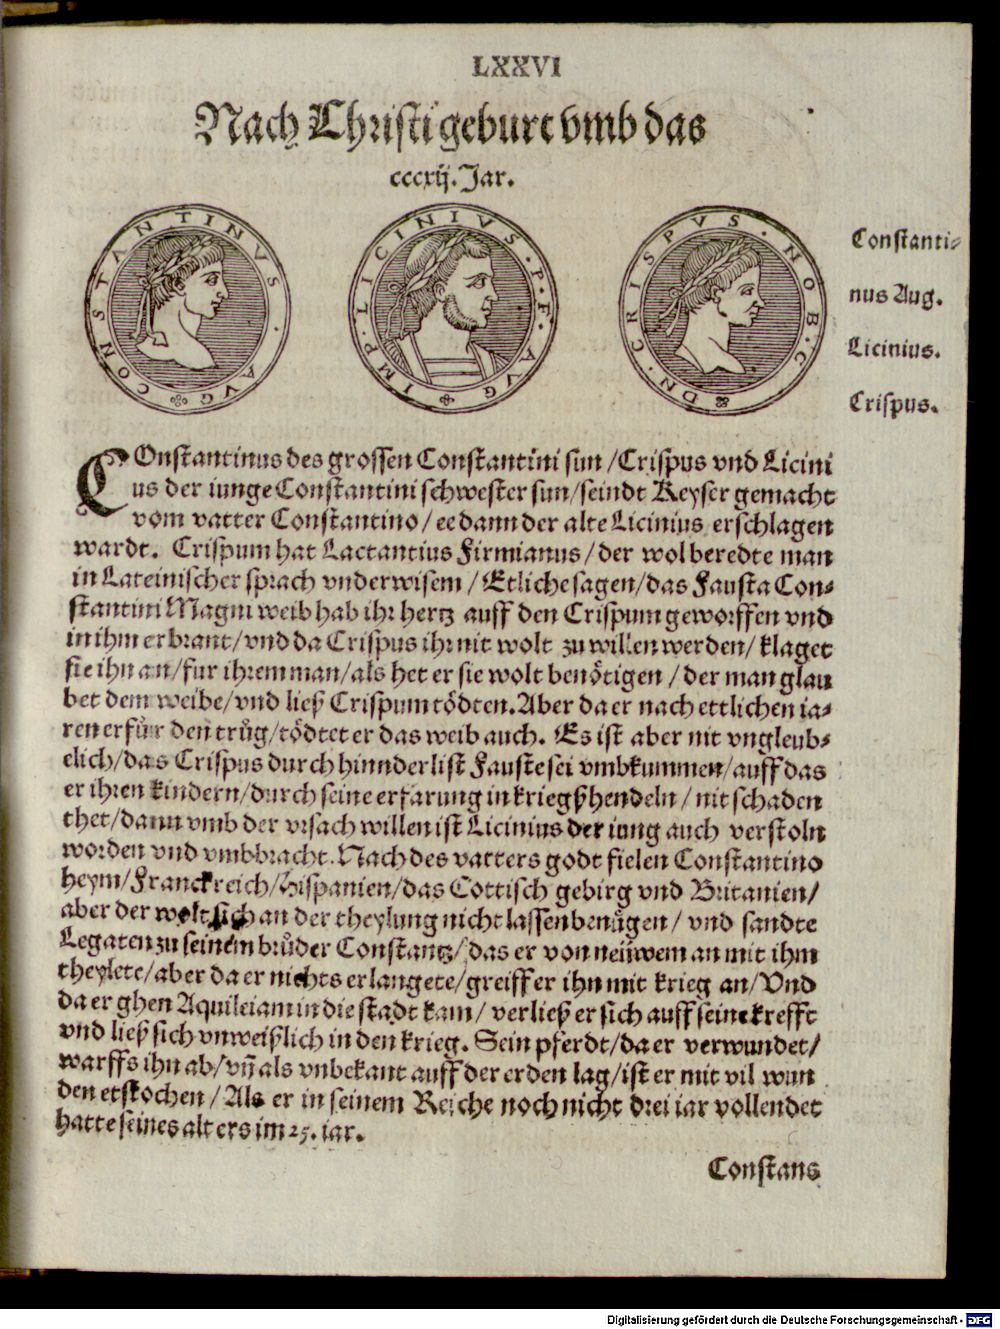 LXXVI
Nach Christi geburt vmb das
cccxij. Jar.
CONSTANTINVS · AVG
IMP · LICINIVS · P · F · AVG
DN · CRISPVS · NOB · C
Constanti⸗
nus Aug.
Licinius.
Crispus.
COnstantinus des grossen Constantini sun / Crispus vnd Licini
us der iunge Constantini schwester sun / seindt Keyser gemacht
vom vatter Constantino / ee dann der alte Licinius erschlagen
wardt. Crispum hat Lactantius Firmianus / der wolberedte man
in Lateinischer sprach vnderwisem / Etliche sagen / das Fausta Con⸗
stantini Magni weib hab ihr hertz auff den Crispum geworffen vnd
in ihm erbrant / vnd da Crispus ihr nit wolt zu willen werden / klaget
sie ihn an / fur ihrem man / als het er sie wolt benötigen / der man glau
bet dem weibe / vnd ließ Crispum tödten. Aber da er nach ettlichen ia⸗
ren erfůr den trůg / tödtet er das weib auch. Es ist aber nit vngleub⸗
elich / das Crispus durch hinnderlist Fauste sei vmbkummen / auff das
er ihren kindern / durch seine erfarung in kriegßhendeln / nit schaden
thet / dann vmb der vrsach willen ist Licinius der iung auch verstoln
worden vnd vmbbracht. Nach des vatters godt fielen Constantino
heym / Franckreich / Hispanien / das Cottisch gebirg vnd Britanien /
aber der wolt sich an der theylung nicht lassen benůgen / vnd sandte
Legaten zu seinem brůder Constantz / das er von neüwem an mit ihm
theylete / aber da er nichts erlangete / greiff er ihn mit krieg an / Vnd
da er ghen Aquileiam in die stadt kam / verließ er sich auff seine krefft
vnd ließ sich vnweißlich in den krieg. Sein pferdt / da er verwundet /
warffs ihn ab / vñ als vnbekant auff der erden lag / ist er mit vil wun
den etstochen / Als er in seinem Reiche noch nicht drei iar vollendet
hatte seines alters im 25. iar.
Constans
Digitalisierung gefördert durch die Deutsche Forschungsgemeinschaft - DFG